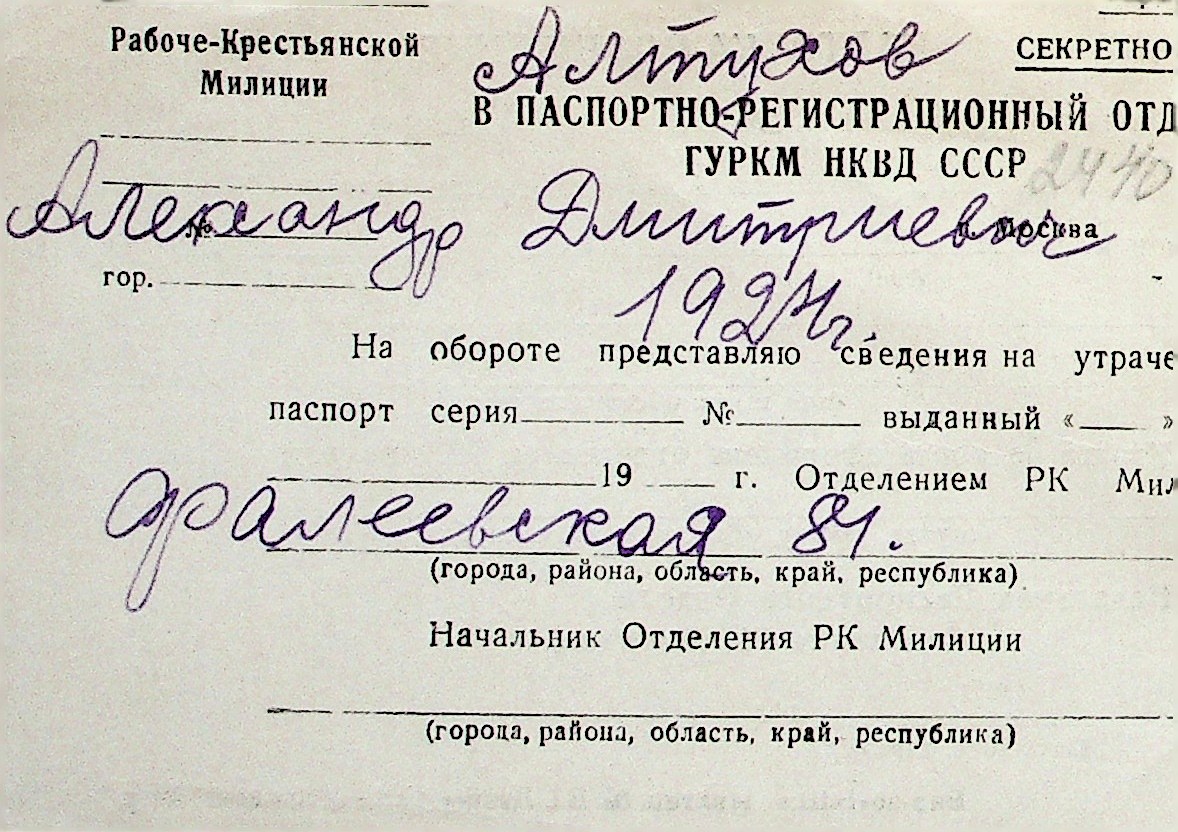 Рабоче-Крестьянской
Милиции
СЕКРЕТНО
Алтухов
В ПАСПОРТНО-РЕГИСТРАЦИОННЫЙ ОТД
ГУРКМ НКВД СССР
2440
Александр Дмитриевич
№ г. Москва
гор.
1924 г.
На обороте представляю сведения на утраче
паспорт серия № выданный « »
19 г. Отделением РК Мил
Фалеевская 84.
(города, района, область, край, республика)
Начальник Отделения РК Милиции
(города, района, область, край, республика)